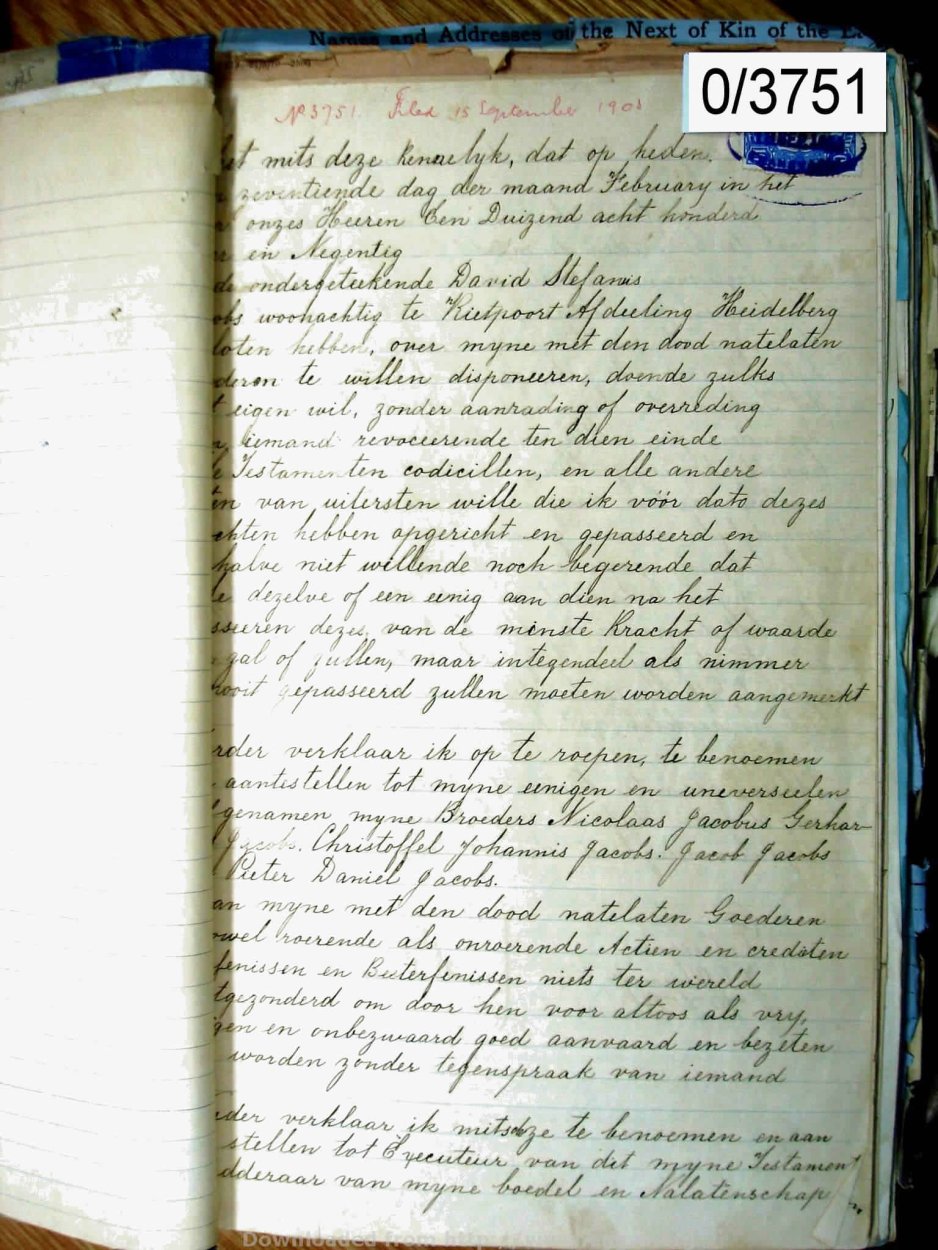 Names and Addresses of the Next of Kin of the
0/3751
No 3751. Filed 15 September 1903
mits deze kennelyk, dat op heden.
zeventiende dag der maand February in het
onzes Heeren Een Duizend acht honderd
en Negentig
ondergeteekende David Stefanus
obs woonachtig te Rietpoort Afdeeling Heidelberg
loten hebben, over myne met den dood natelaten
deren te willen disponeeren, doende zulks
eigen wil, zonder aanrading of overreding
iemand revoceerende ten dien einde
Testamenten codicillen, en alle andere
en van uitersten wille die ik vóór dato dezes
chten hebben opgericht en gepasseerd en
halve niet willende noch begerende dat
dezelve of een eenig aan dien na het
sseeren dezes, van de minste Kracht of waarde
gal of zullen, maar integendeel als nimmer
nooit gepasseerd zullen moeten worden aangemerkt
rder verklaar ik op te roepen, te benoemen
aantestellen tot myne eenigen en uneverseelen
genamen myne Broeders Nicolaas Jacobus Gerhar-
Jacobs. Christoffel Johannis Jacobs. Jacob Jacobs
Pieter Daniel Jacobs.
an myne met den dood natelaten Goederen
wel roerende als onroerende Actien en crediten
fenissen en Besterfenissen niets ter wereld
tgezonderd om door hen voor altoos als vry,
gen en onbezwaard goed aanvaard en bezeten
worden zonder tegenspraak van iemand
der verklaar ik mitsdeze te benoemen en aan
stellen tot Executeur van dit myne Testament
dderaar van myne boedel en Nalatenschap
Downloaded from http://